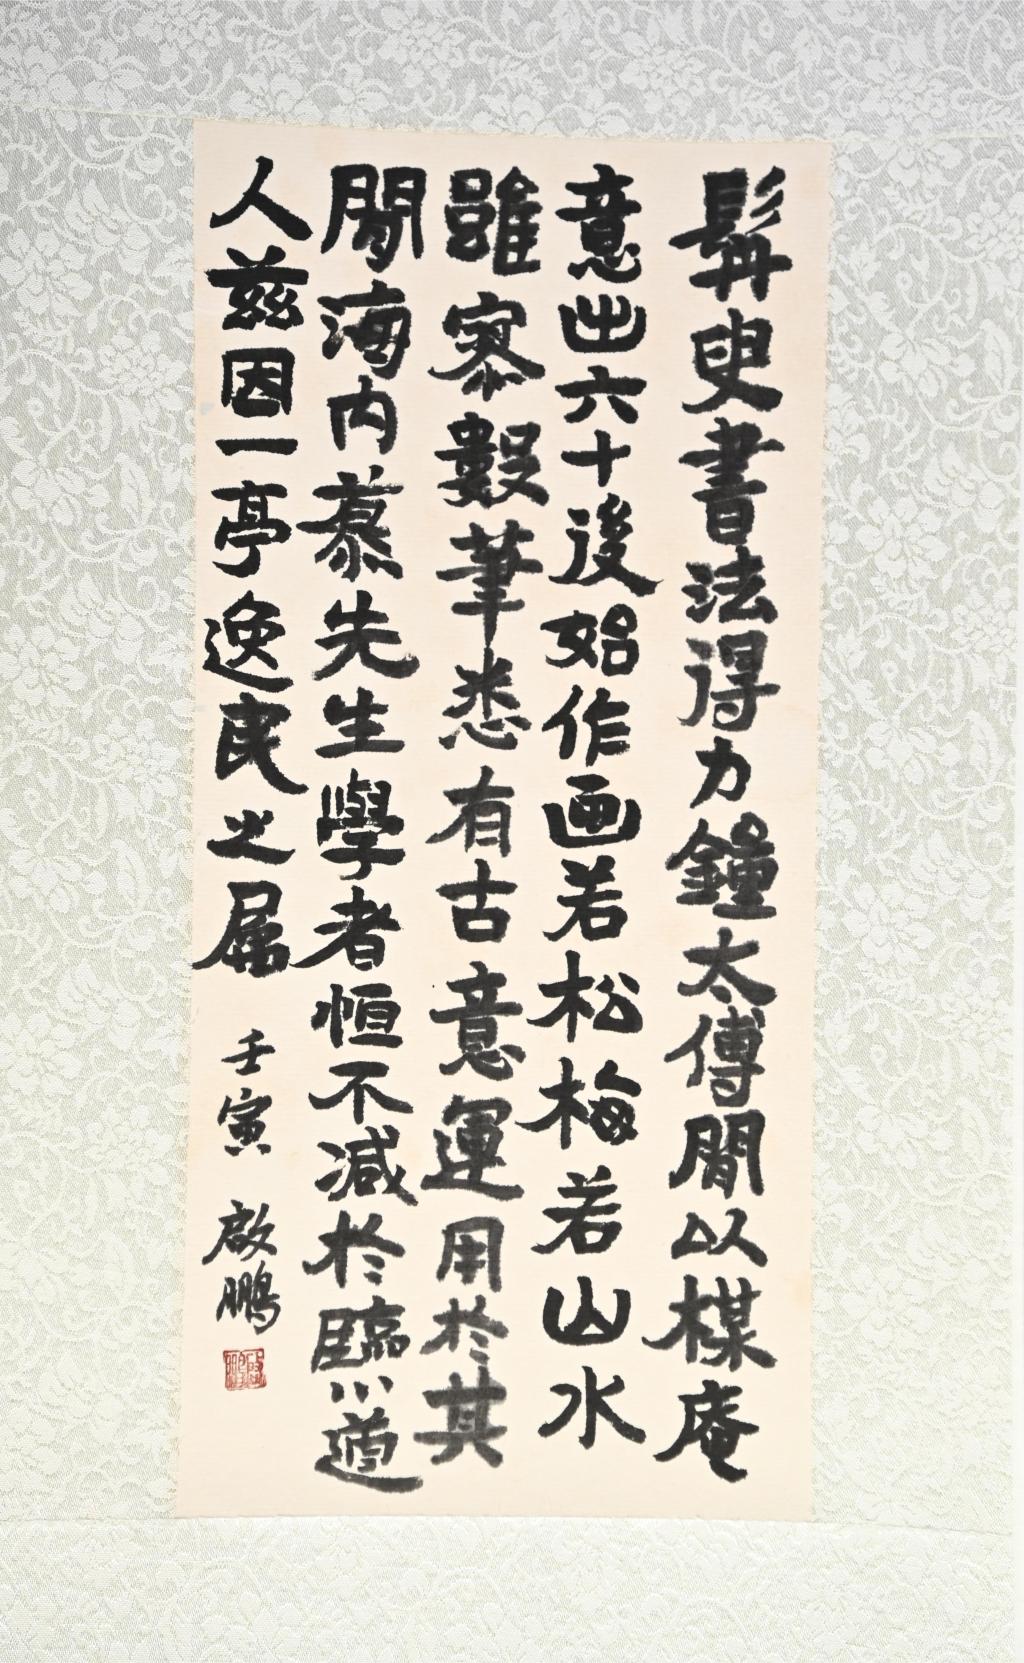 髯叟書法得力鐘太傅間以樸庵
意出六十後始作画若松梅若山水
雖寥數筆悉有古意運用於其
間海内慕先生學者恒不減於臨川道
人兹因一亭逸民之屬
壬寅 啟鵬